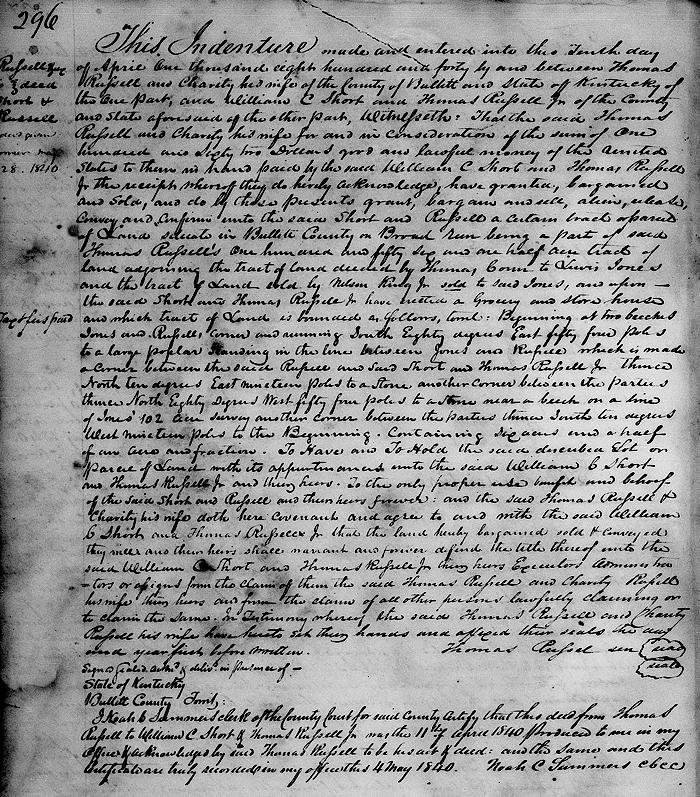 296
Russell &ux
& deed
Short &
Russell
28. 1840
This Indenture made and entered into this Tenth day
of April One thousand eight hundred and forty by and between Thomas
Russell and Charity his wife of the County of Bullitt and State of Kentucky of
the One part, and William C Short and Thomas Russell Jr of the County
and State aforesaid of the other part, Witnesseth: That the said Thomas
Russell and Charity his wife for and in consideration of the sum of One
hundred and Sixty two Dollars good and lawful money of the United
States to them in hand paid by the said William C Short and Thomas Russell
Jr the receipt whereof they do hereby acknowledge, have granted, bargained
and Sold, and do by these presents grant, bargain and sell, alien, release,
Convey and Confirm unto the said Short and Russell a certain tract or parcel
of Land situate in Bullitt County on Broad run being a part of said
Thomas Russell's One hundred and fifty six and one half acre tract of
land adjoining the tract of land deeded by Thomas to Lewis Jones
and the tract of Land sold by Nelson King Jr sold to said Jones, and upon —
the said Short and Thomas Russell Jr have erected a Grocery and store house
Tax & fees paid
and which tract of Land is bounded as follows, towit: Beginning at two beeches
Jones and Russells corner and running South Eighty degrees East fifty four Poles
to a large poplar standing in the line between Jones and Russell which is made
a corner between the said Russell and said Short and Thomas Russell Jr thence
North ten degrees East nineteen Poles to a Stone another corner between the parties
thence North Eighty Degrees West fifty four poles to a stone near a beech on a line
of Jones' 102 acre survey another corner between the parties thence South ten degrees
West nineteen Poles to the Beginning. Containing Six acres and a half
of an acre and fraction. To Have and To Hold the said described Lot or
Parcel of Land with its appurtenances unto the said William C Short
and Thomas Russell Jr and their heirs. To the only proper use benefit and behoof
of the said Short and Russell and their heirs forever: and the said Thomas Russell &
Charity his wife doth here Covenant and agree to and with the said William
C Short and Thomas Russell Jr that the land hereby bargained sold & conveyed
they will and their heirs shall warrant and forever defend the title thereof unto the
said William C Short and Thomas Russell Jr their heirs Executors Administra
-tors or assigns from the claim of them the said Thomas Russell and Charity Russell
his wife their heirs and from the claims of all other persons lawfully claiming or
to claim the Same. In Testimony whereof the said Thomas Russell and Charity
Russell his wife have hereto set their hands and affixed their seals the day
and year first before written. Thomas Russel sen seal
Signed sealed & deliv'd in presence of — seal
State of Kentucky
Bullitt County
I Noah C Summers clerk of the County Court for said County Certify that this deed from Thomas
Russell to William C Short & Thomas Russell Jr was the 11th April 1840 Produced to me in my
Office & acknowledged by said Thomas Russell to be his act & deed: and the same and this
Certificate are truly recorded in my office this 4 May 1840. Noah C Summers cbcc